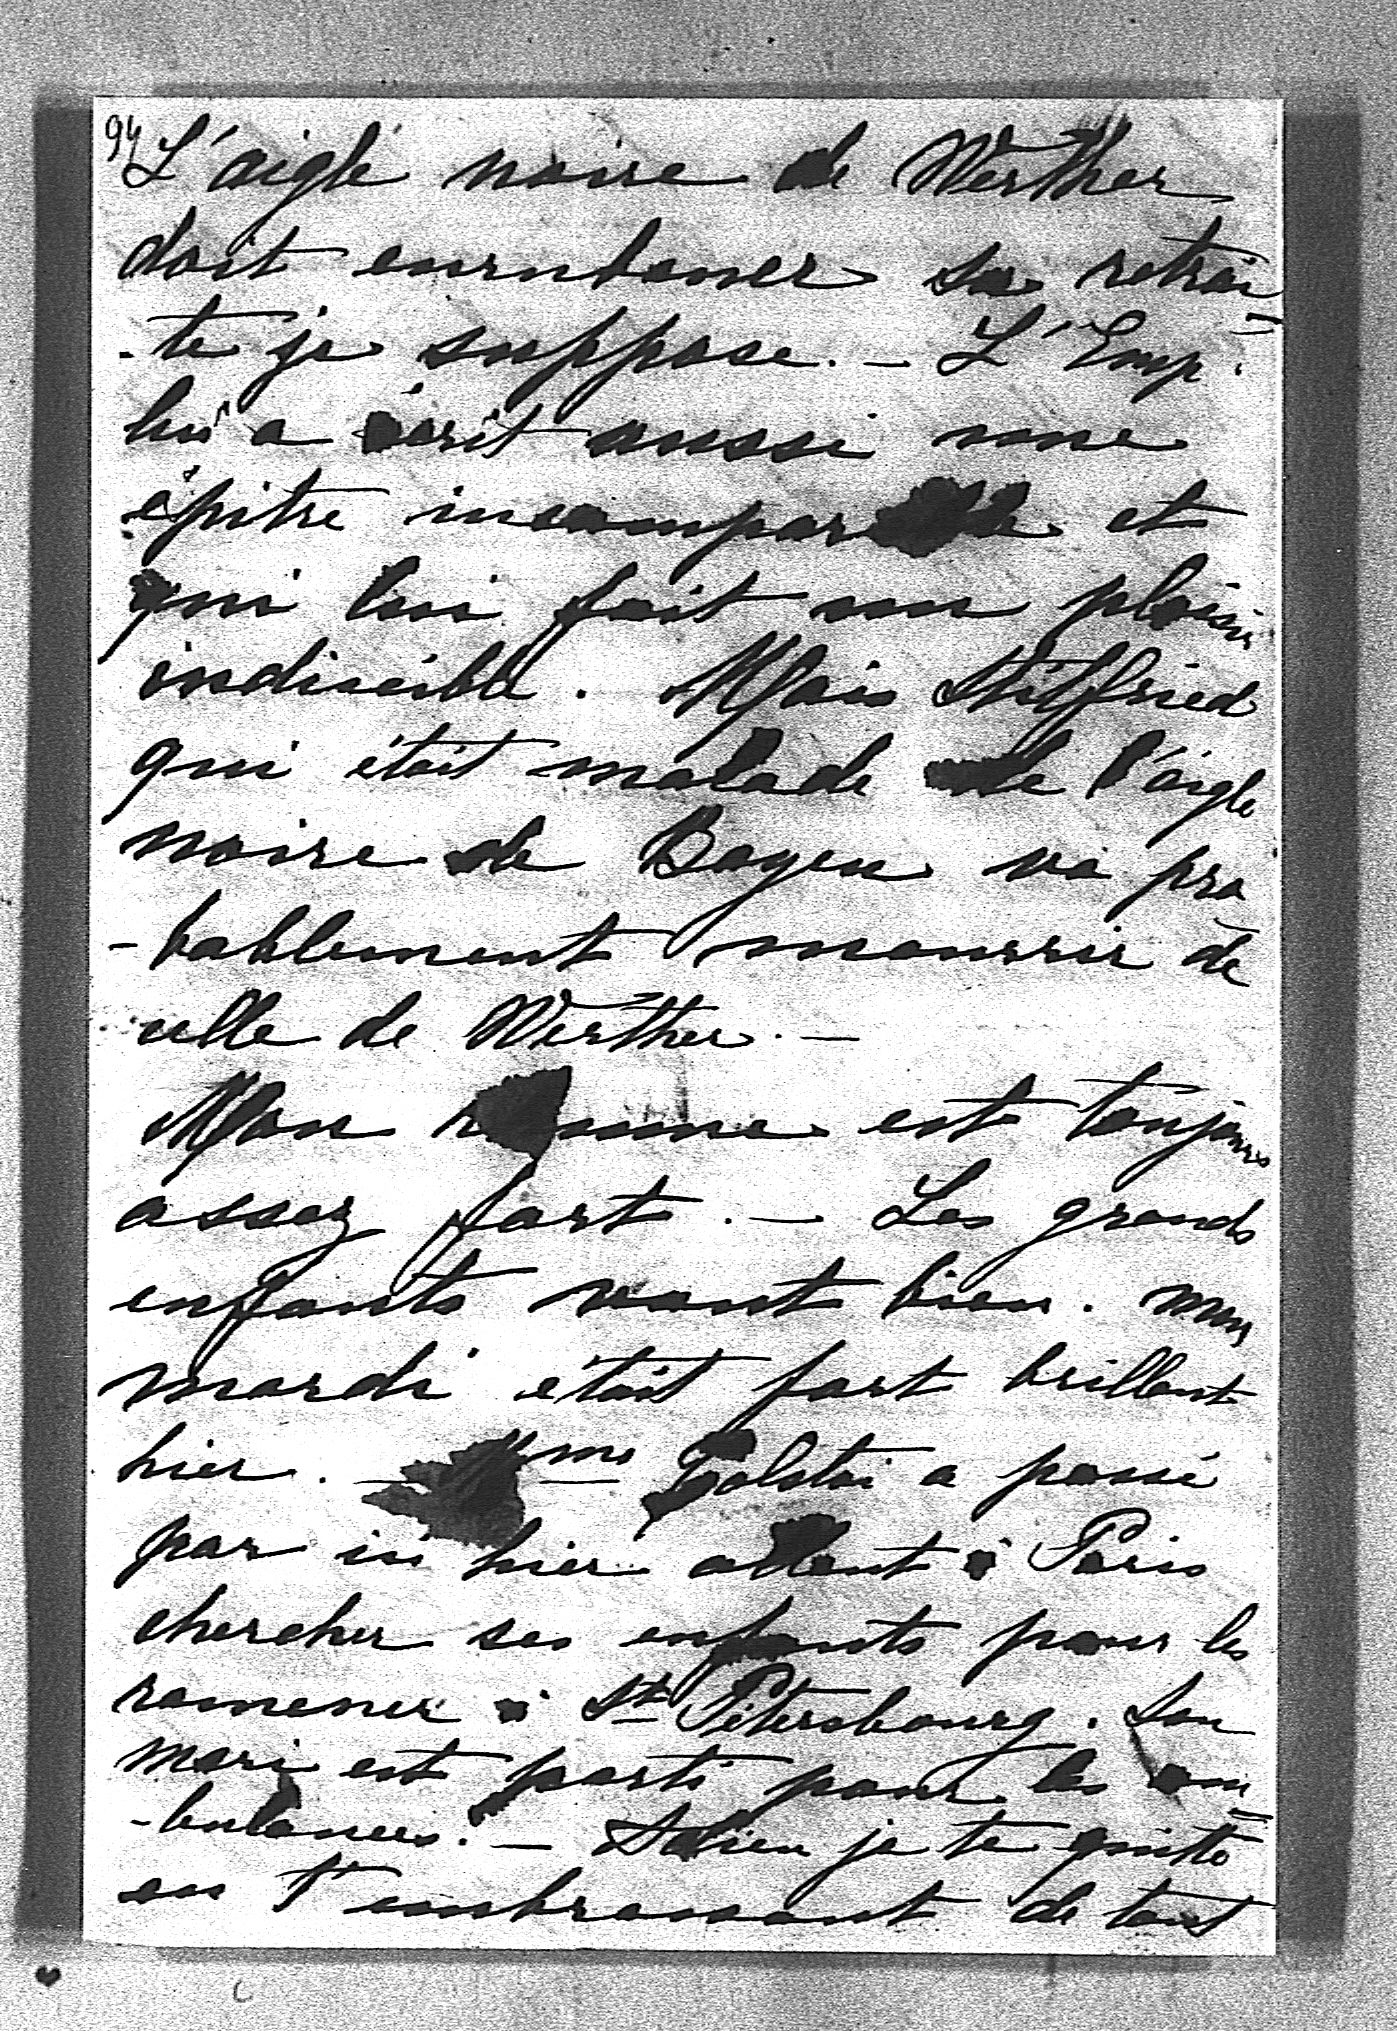 94
L'aigle noire de Werther
doit enrubaner sa retrai
-te je suppose. – L'Emp.
lui a écrit aussi une
épitre incomparable et
qui lui fait un plaisir
indiscible. Mais Stilfried
qui était malade de l'aigle
noire de Bogen va pro
-bablement mourrir de
celle de Werther. –
Mon rhume est toujours
assez fort. – Les grands
enfants vont bien.
mardi était fort brillant
hier. – Mme Tolstoi a passé
par ici hier allant à Paris
chercher ses enfants pour les
ramener à St Pétersbourg. Son
mari est parti pour les am
-bulances. – Adieu je te quitte
en t'embrassant de tout